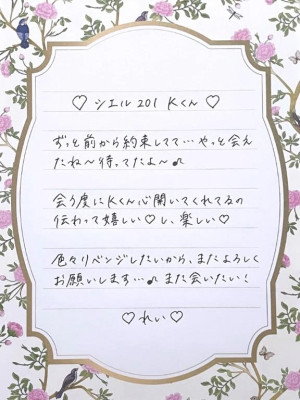 ♡ シエル 201 Kくん ♡
ずっと前から約束してて…やっと会え
たね〜待ってたよ〜♪
会う度にKくん心開いてくれてるの
伝わって嬉しい♡し、楽しい♡
色々リベンジしたいから、またよろしく
お願いします…♪また会いたい!
♡れい♡